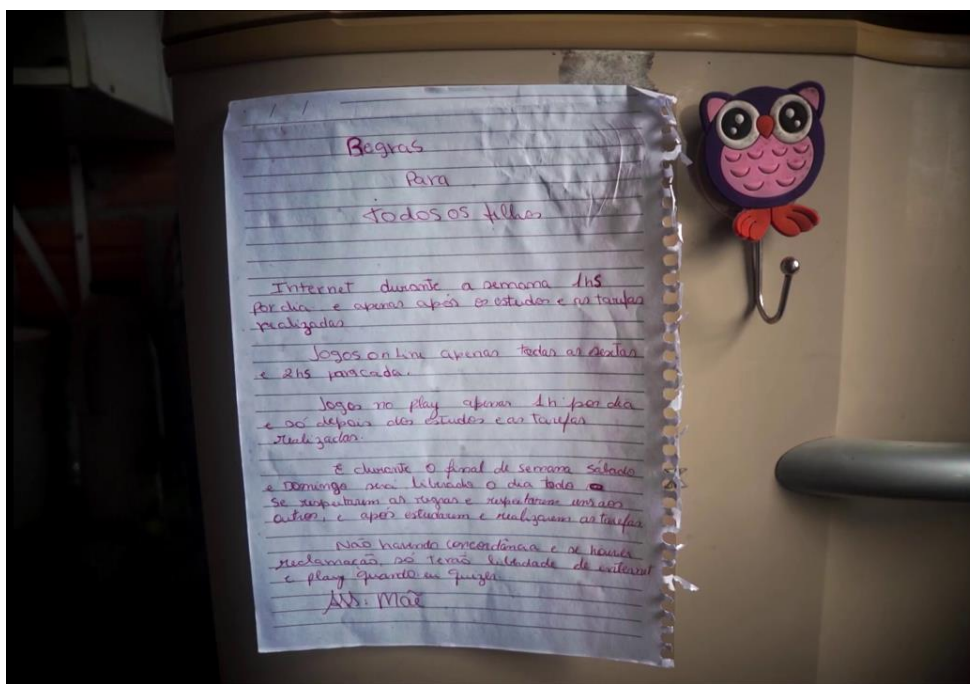 / /
Regras
Para
todos os filhos
Internet durante a semana 1hs
Por dia e apenas após os estudos e as tarefas
realizadas.
Jogos on line apenas todas as sextas
e 2hs pra cada.
Jogos no play apenas 1h por dia
e só depois dos estudos e as tarefas
realizadas.
E durante o final de semana sábado
e Domingo sera liberado o dia todo
se respeitarem as regras e respeitarem uns aos
outros, e após estudarem e realizarem as tarefas
Não havendo concordância e se houver
reclamação, só terão liberdade de internet
e play quando eu quizer.
Ass: Mãe